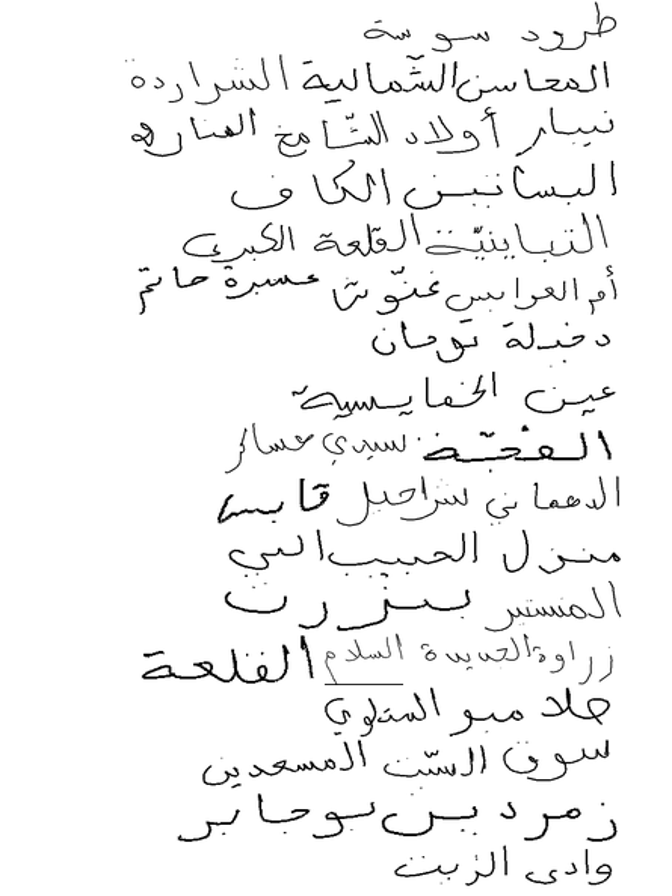 طرود سوسة
المحاسن الشّمالية الشراردة
نيبار أولاد الشّامخ المنارة
البساتين الكاف
التبابنيّة القلعة الكبرى
أم العرايس غنّوش عسيرة حاتم
دخيلة توجان
عين الخفايسية
الفجّة سيدي عساكر
الدهماني شراحيل قابس
منزل الحبيب البي
المنستير بنزرت
زراوة الجديدة السلام القلعة
صلامبو المتلوي
سوق السّبت المسعدين
زمردين بوجابر
وادي الزيت